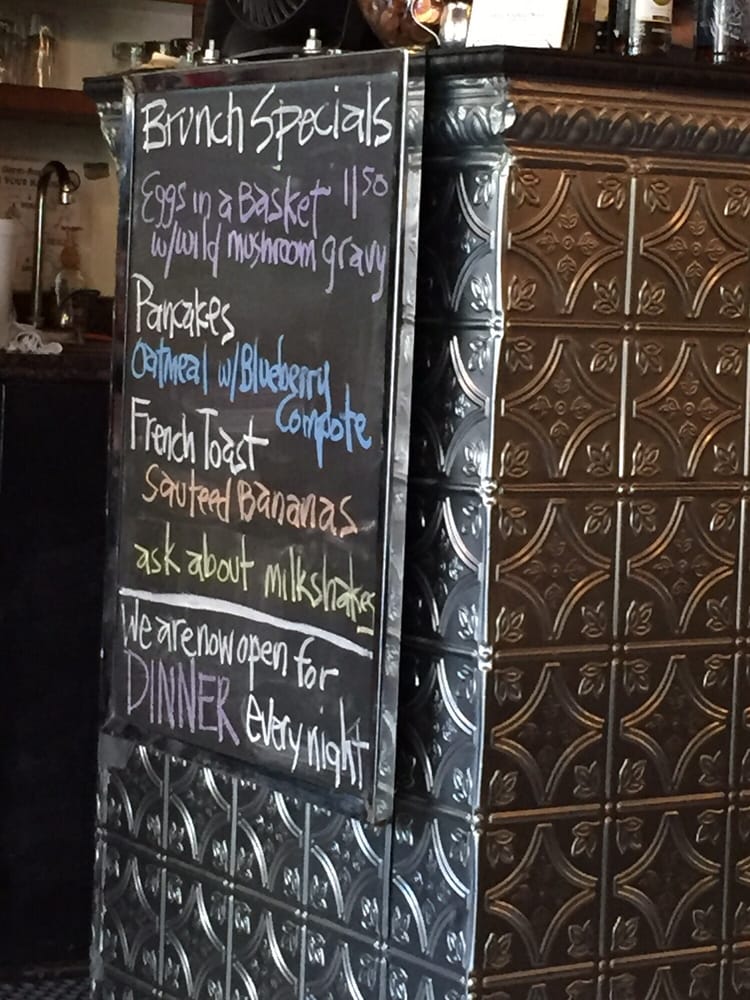 Brunch Specials
Eggs in a Basket 11 50
w/wild mushroom gravy
Pancakes
Oatmeal w/Blueberry
Compote
French Toast
Sauteed Bananas
ask about milkshakes
We are now open for
DINNER every night